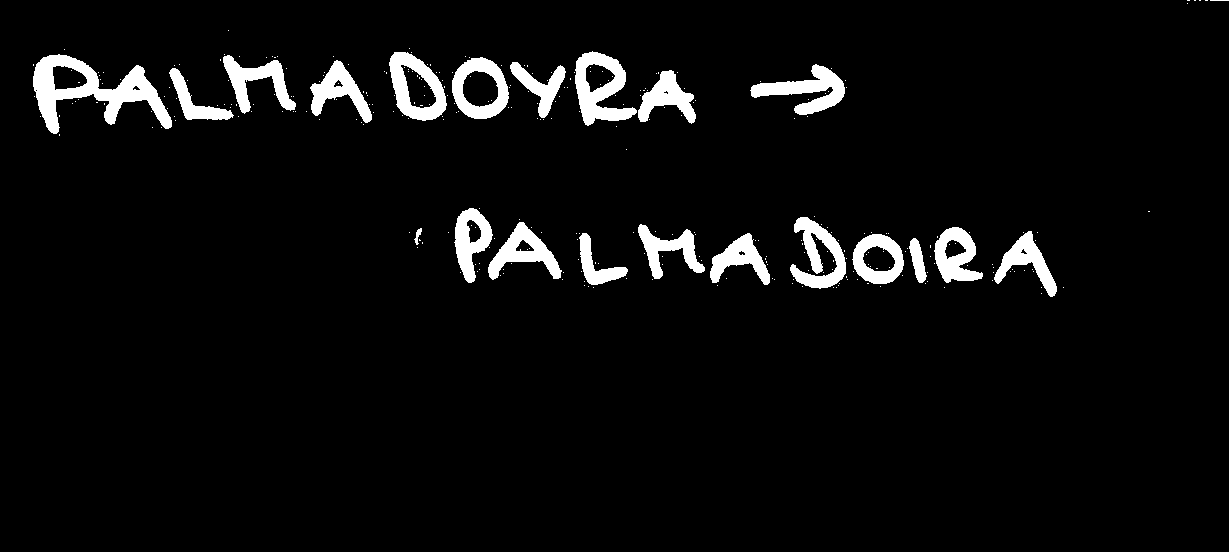 PALMADOYRA →
PALMADOIRA